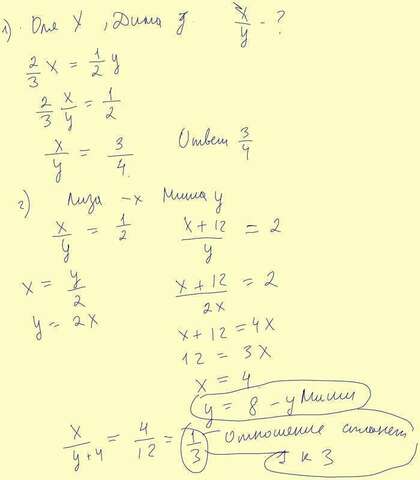 1) Оля X, Дима y. x/y - ?
2/3 x = 1/2 y
2/3 x/y = 1/2
x/y = 3/4. Ответ 3/4
2) Лиза - x Миша y
x/y = 1/2 (x+12)/y = 2
x = y/2 (x+12)/2x = 2
y = 2x x+12 = 4x
12 = 3x
x = 4
y = 8 - у Миши
x/(y+4) = 4/12 = 1/3 отношение станет
1 к 3